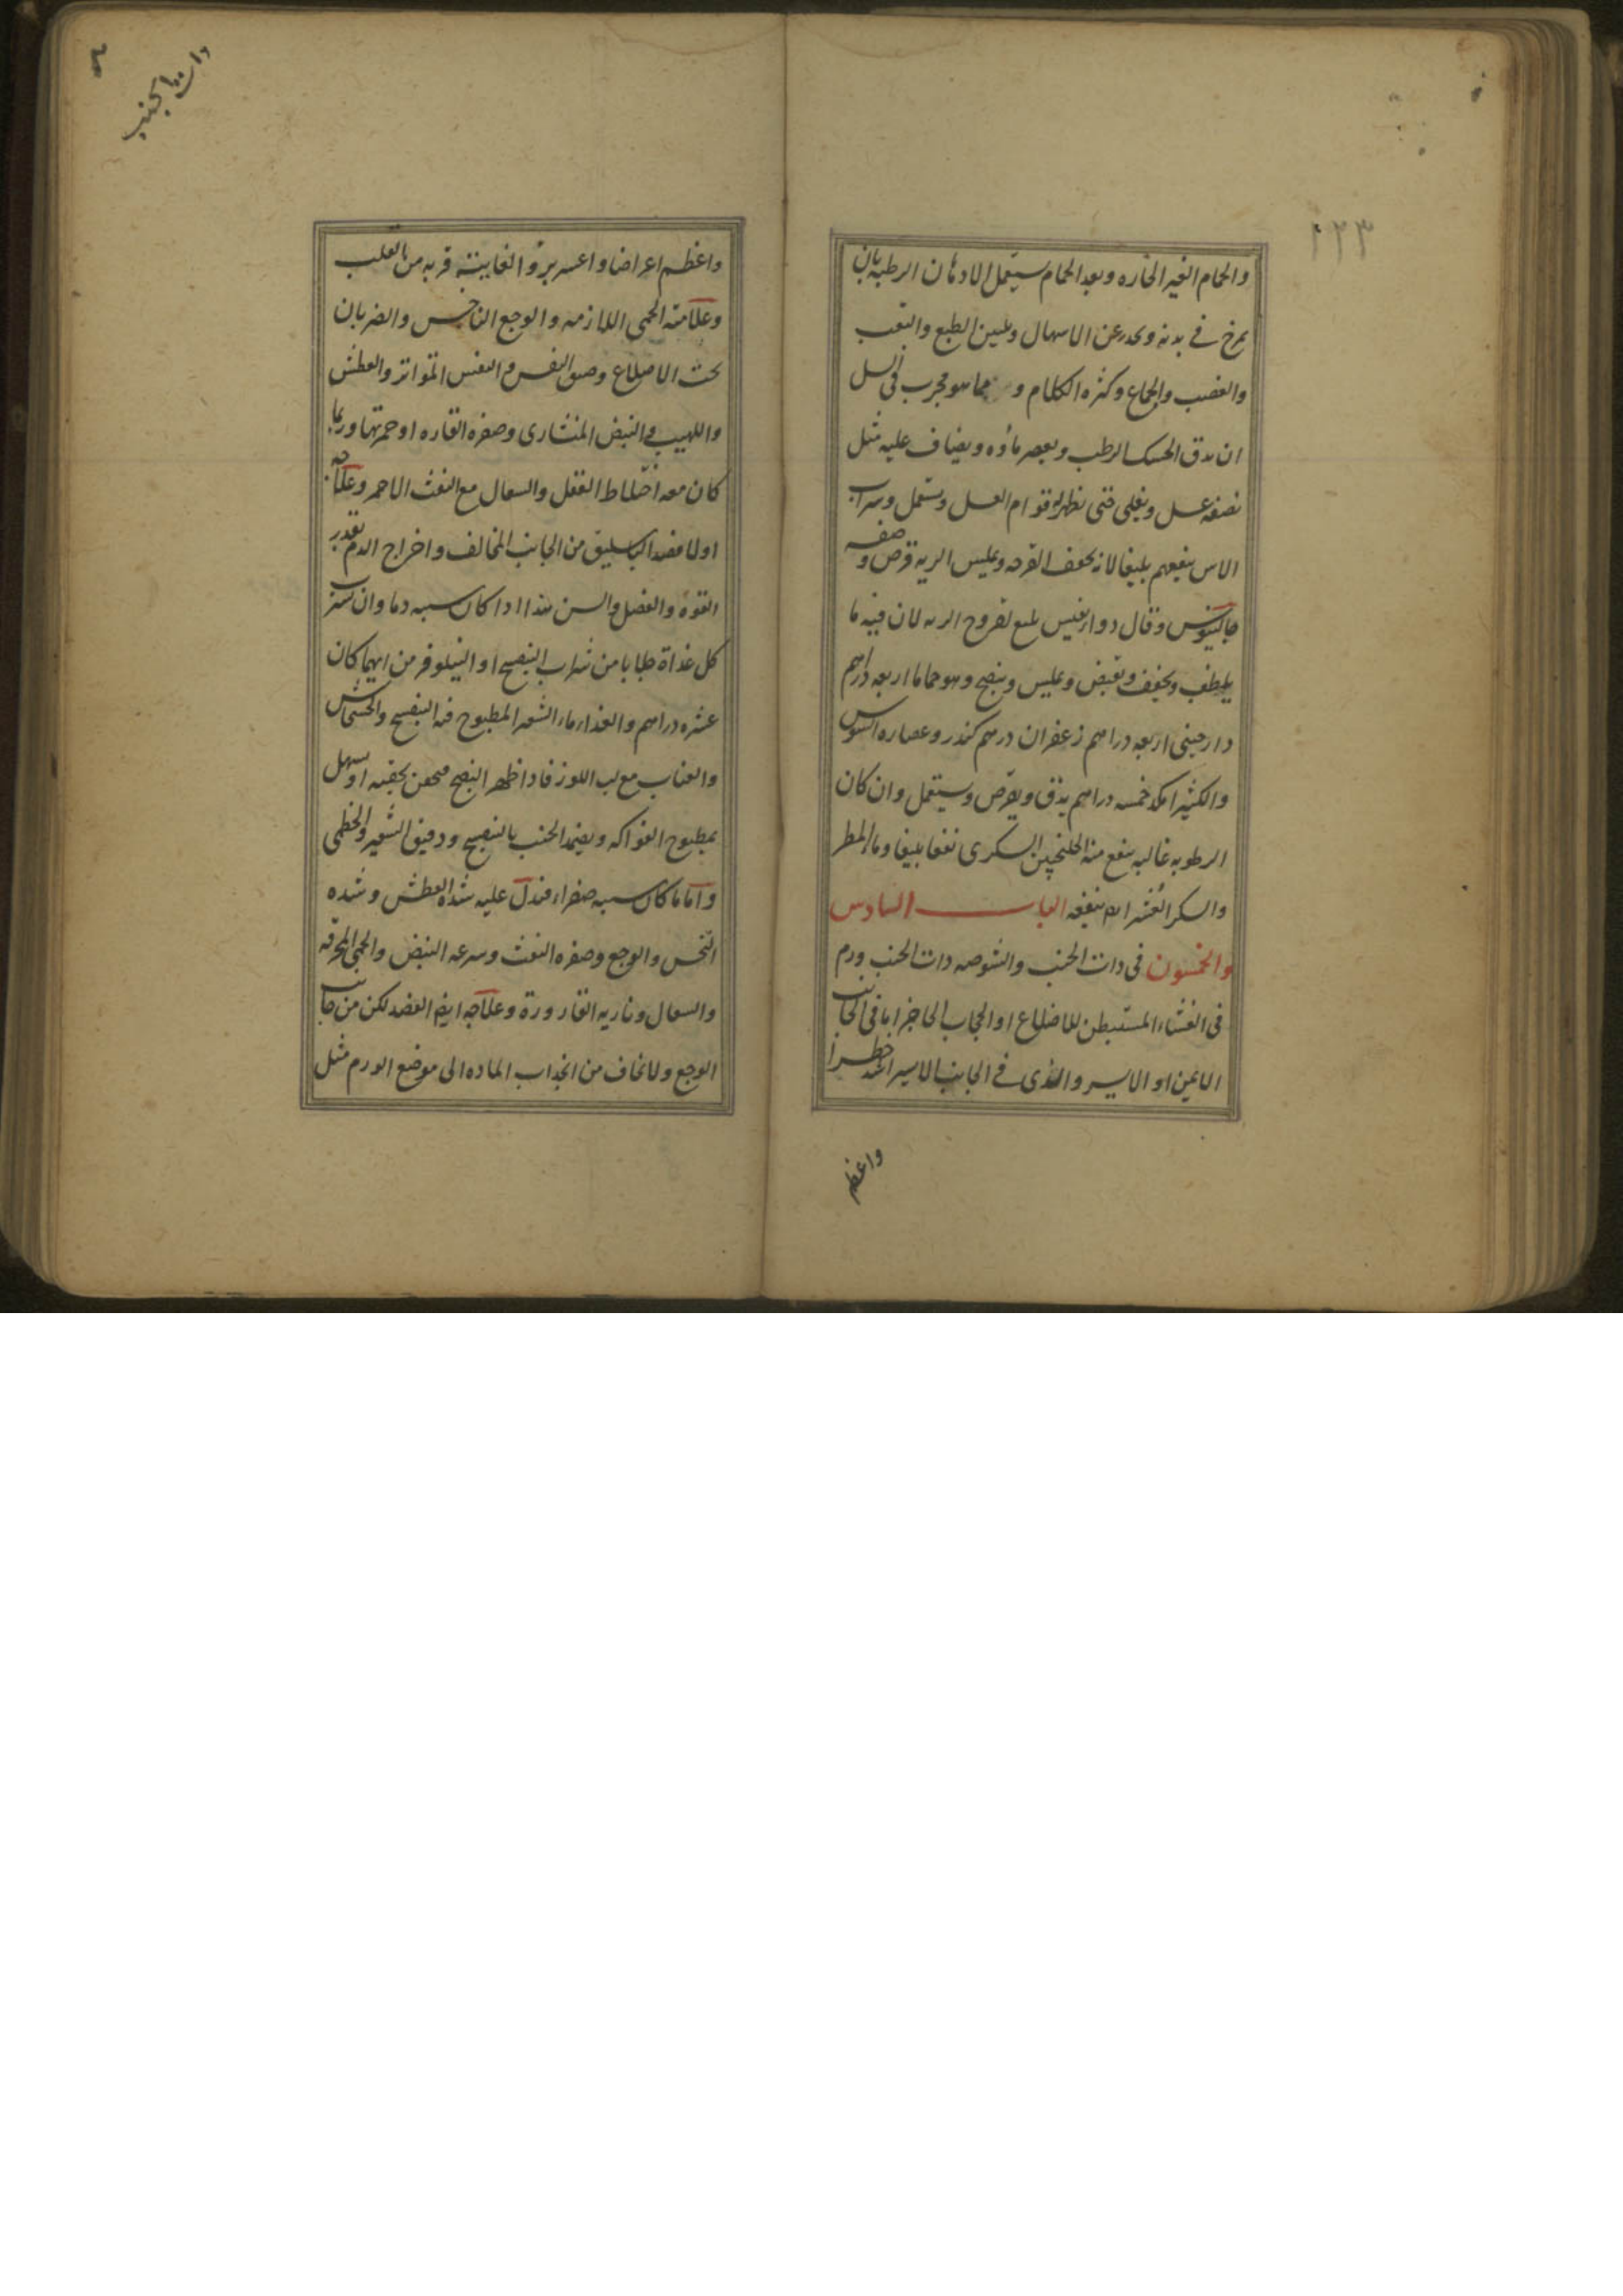 ١٢٣
والحمام الغير الحاره وبعد الحمام يستعمل الادهان الرطبه بان
يمرخ في بدنه ويحذر عن الاسهال وتليين الطبع والتعب
والغضب والجماع وكثره الكلام و مما هو مجرب في السل
ان يدق الحسك الرطب ويعصر ماؤه ويضاف عليه مثل
نصفه عسل ويغلى حتى يظهر له قوام العسل ويستعمل وشراب
الاس ينفعهم بليغا لانه يجفف القرحه ويملس الريه قرص وصفه
جالينوس وقال دوا نفيس لقروح الريه لان فيه ما
يلطف ويجفف ويقبض ويملس وينضج وهو حماما اربعه دراهم
دارچيني اربعه دراهم زعفران درهم كندر وعصاره السوس
والكثيرا مكد خمسه دراهم يدق ويقرص ويستعمل وان كان
الرطوبه غالبه ينفع منه الجلنجبين السكري نفعا بليغا وماء المطر
والسكر العشر ايم ينفعه الباب السادس
والخمسون في ذات الجنب والشوصه ذات الجنب ورم
في الغشاء المستبطن للاضلاع او الحجاب الحاجز اما في الجانب
الايمن او الايسر والذي في الجانب الايسر اشد خطرا
واعظم
ذات الجنب
واعظم اعراضا واعسر برؤا لغايته قربه من القلب
وعلامته الحمى اللازمه والوجع الناخس والضربان
تحت الاضلاع وضيق النفس والنفس المتواتر والعطش
واللهيب والنبض المنشاري وصفره القاره او حمرتها وربما
كان معه اختلاط العقل والسعال مع النفث الاحمر وعلاجه
اولا فصد الباسليق من الجانب المخالف واخراج الدم بقدر
القوة والفصل والسن هذا اذا كان سببه دما وان يشرب
كل غداة جلابا من شراب البنفسج او النيلوفر من ايهما كان
عشره دراهم والغذاء ماء الشعير المطبوخ فيه البنفسج والخشخاش
والعناب مع لب اللوز فاذا ظهر النضج فيحقن بحقنه او يسهل
بمطبوخ الفواكه ويضمد الجنب بالبنفسج ودقيق الشعير والخطمي
واما ما كان سببه صفراء فيدل عليه شده العطش وشده
النخس والوجع وصفره النفث وسرعه النبض والحمى المحرقه
والسعال وناريه القارورة وعلاجه ايضا الفصد لكن من جانب
الوجع ولا تخاف من انجذاب الماده الى موضع الورم مثل